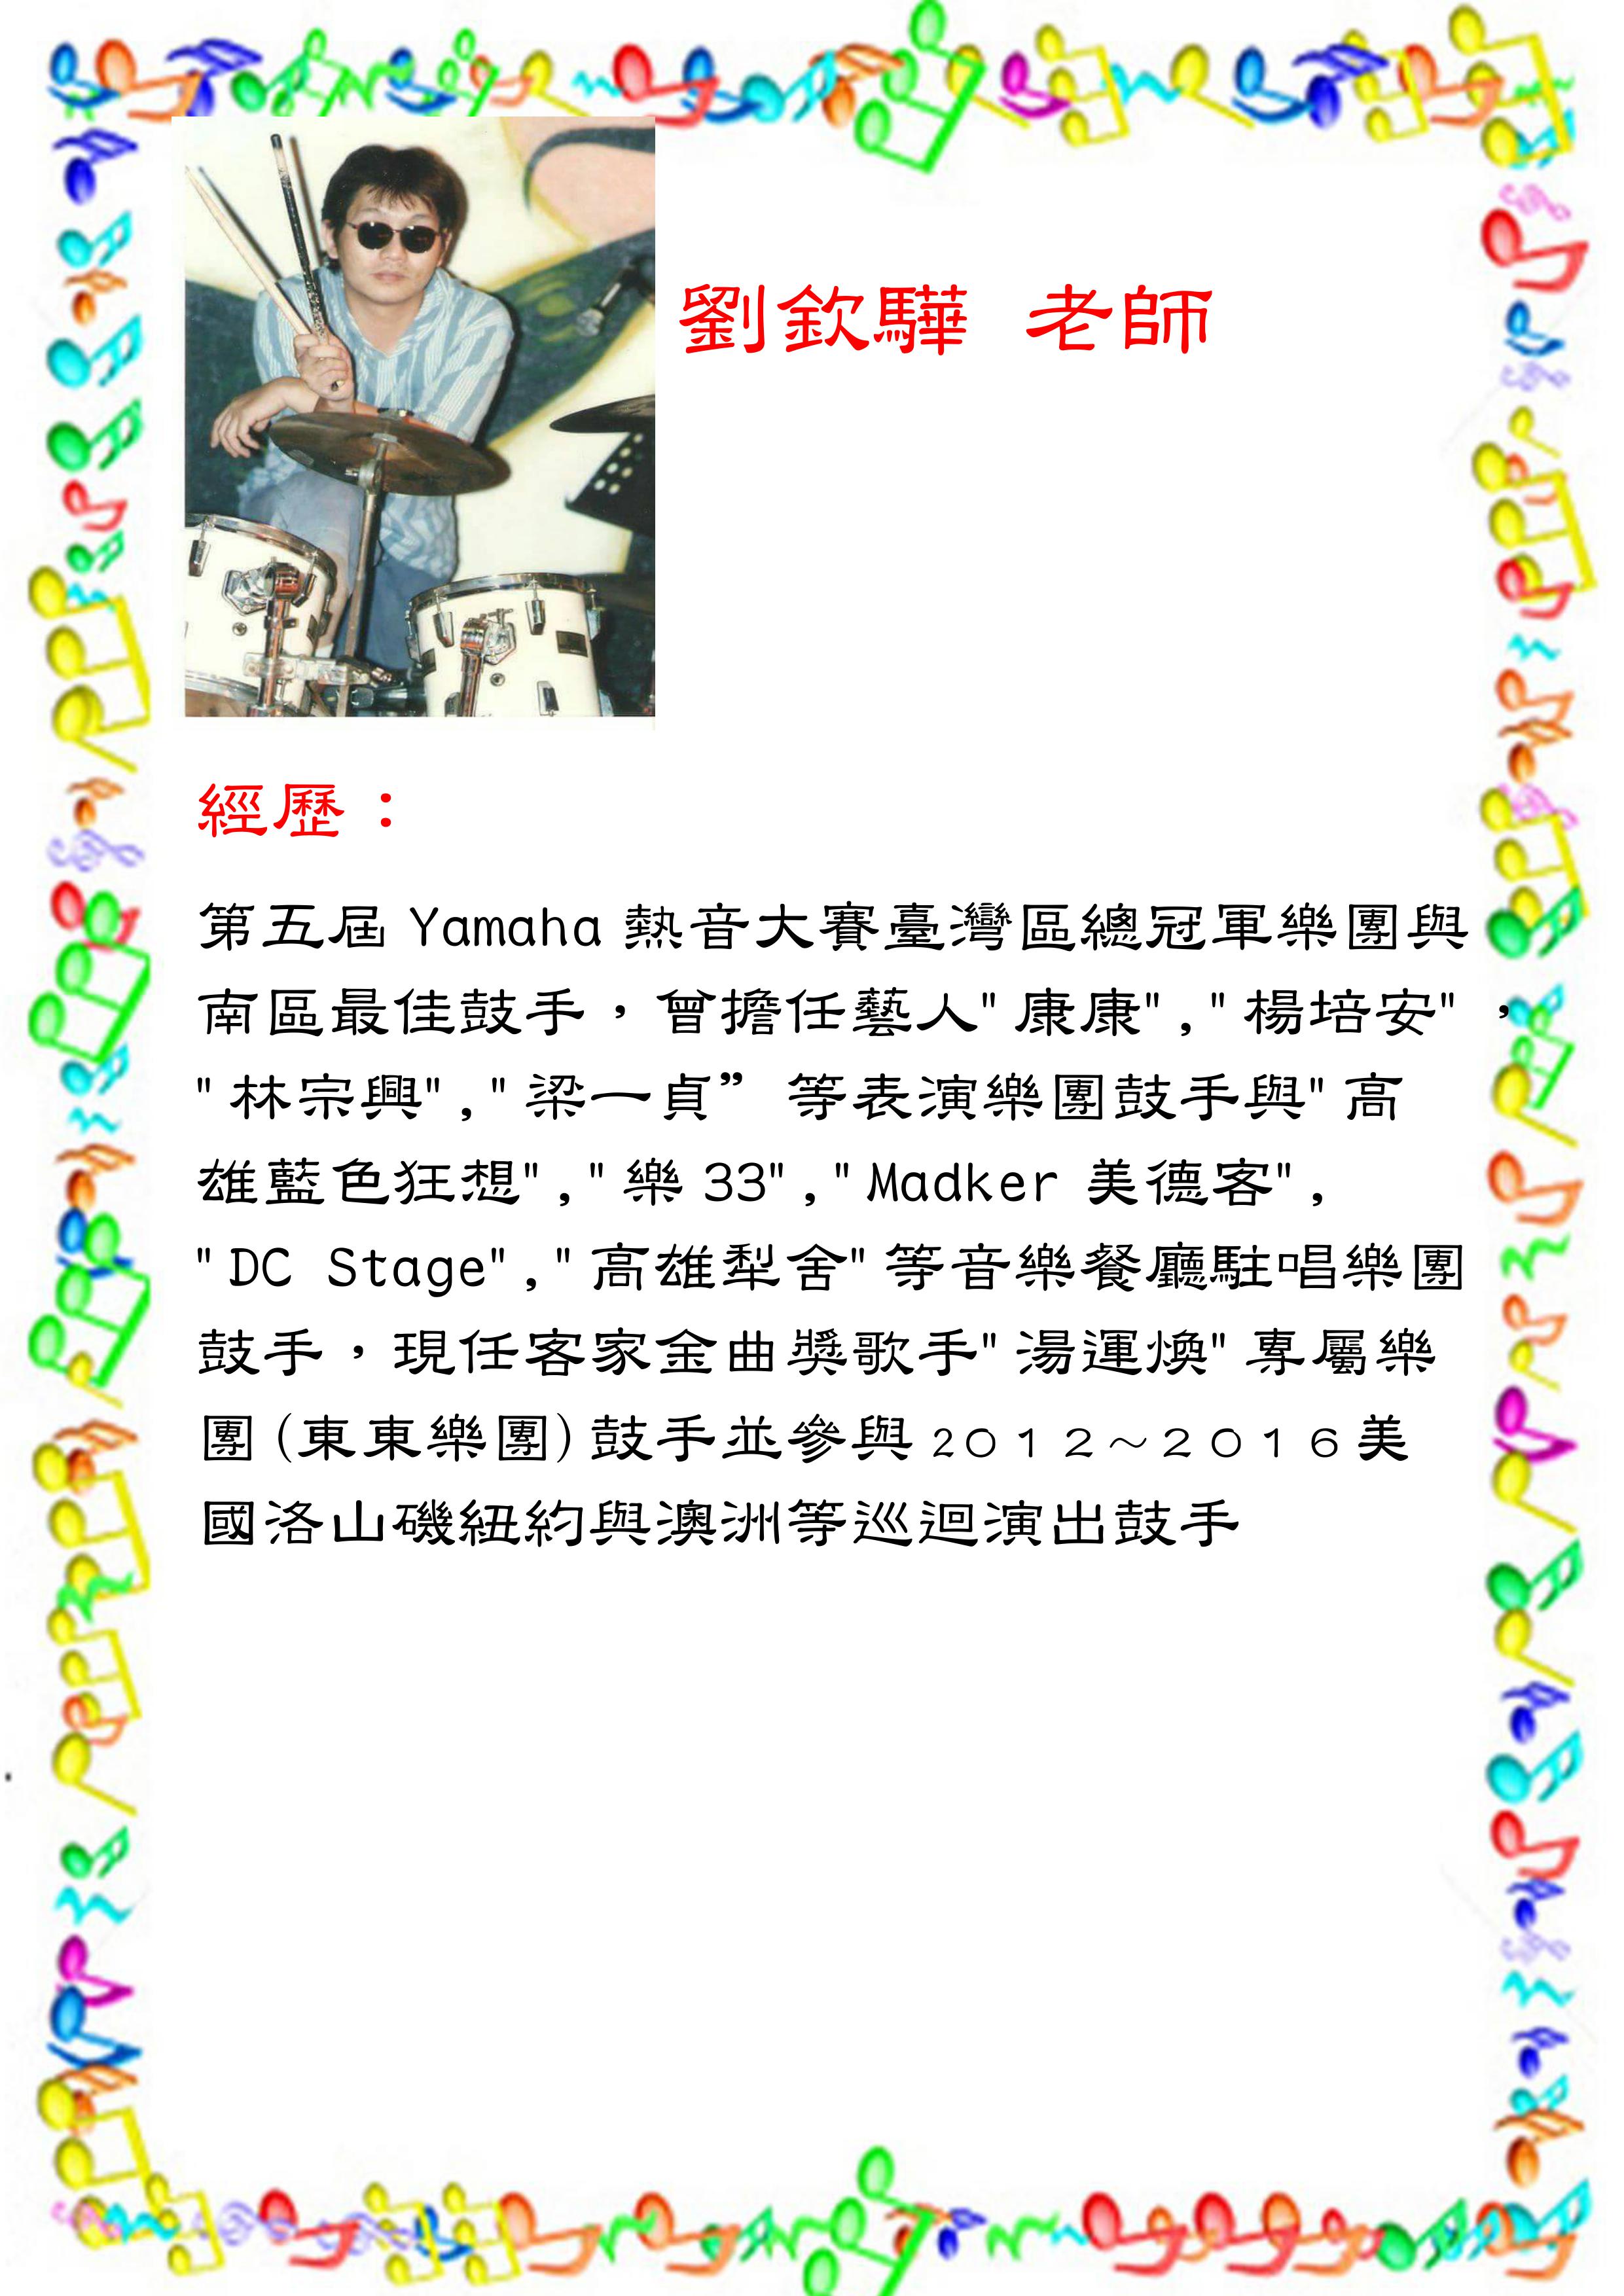 劉欽驊 老師
經歷：
第五屆 Yamaha 熱音大賽臺灣區總冠軍樂團與
南區最佳鼓手，曾擔任藝人"康康","楊培安"，
"林宗興","梁一貞” 等表演樂團鼓手與"高
雄藍色狂想","樂 33","Madker 美德客",
"DC Stage","高雄犁舍"等音樂餐廳駐唱樂團
鼓手，現任客家金曲獎歌手"湯運煥"專屬樂
團(東東樂團)鼓手並參與２０１２～２０１６美
國洛山磯紐約與澳洲等巡迴演出鼓手